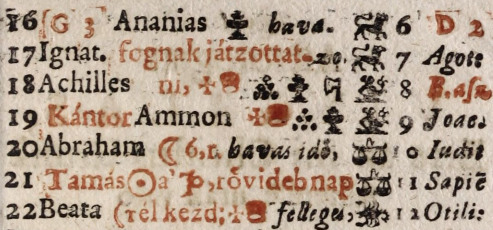 16 G 3 Ananias bava. 6 D 2
17 Ignat. fognak játzottat-zo. 7 Agot:
18 Achilles ni, 8 B.aſz
19 Kántor Ammon 9 Joac.
20 Abraham ☾ 6,r. havas idö, 10 Iudit
21 Tamás ☉ a' rövideb nap 11 Sapiē
22 Beata (Tél kezd; felleges. 12 Otili: